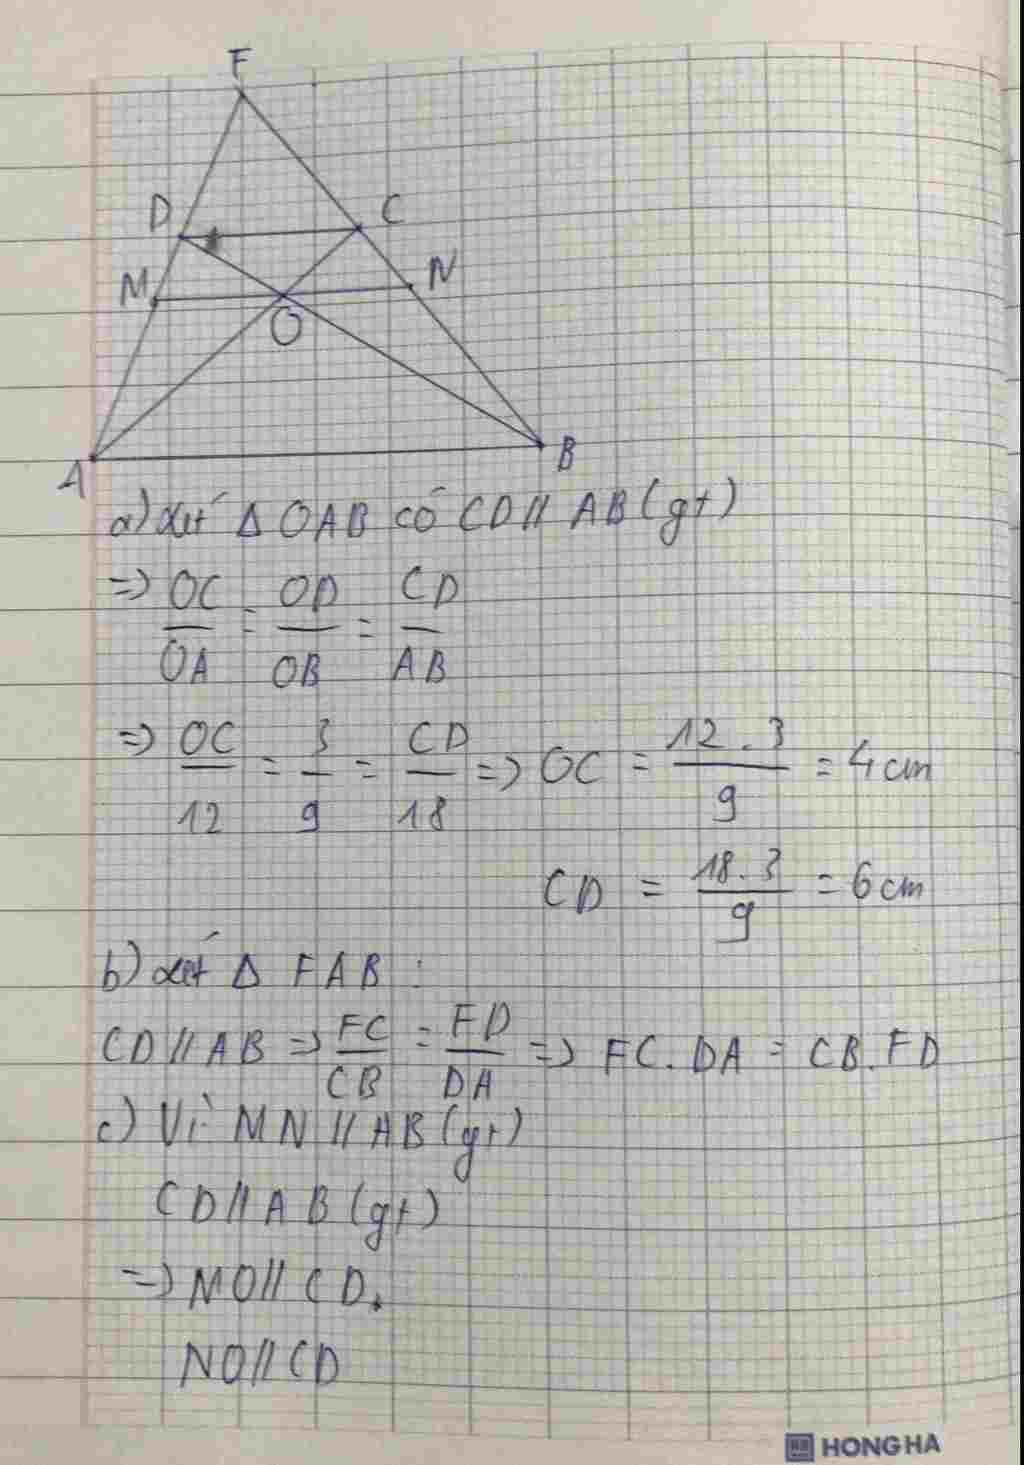 F
D C
M N
O
A B
a) Xét Δ OAB có CD // AB (gt)
=> OC/OA = OD/OB = CD/AB
=> OC/12 = 3/9 = CD/18 => OC = 12.3/9 = 4cm
CD = 18.3/9 = 6cm
b) Xét Δ FAB :
CD // AB => FC/CB = FD/DA => FC.DA = CB.FD
c) Vì MN // AB (gt)
CD // AB (gt)
=> MO // CD.
NO // CD
HONG HA